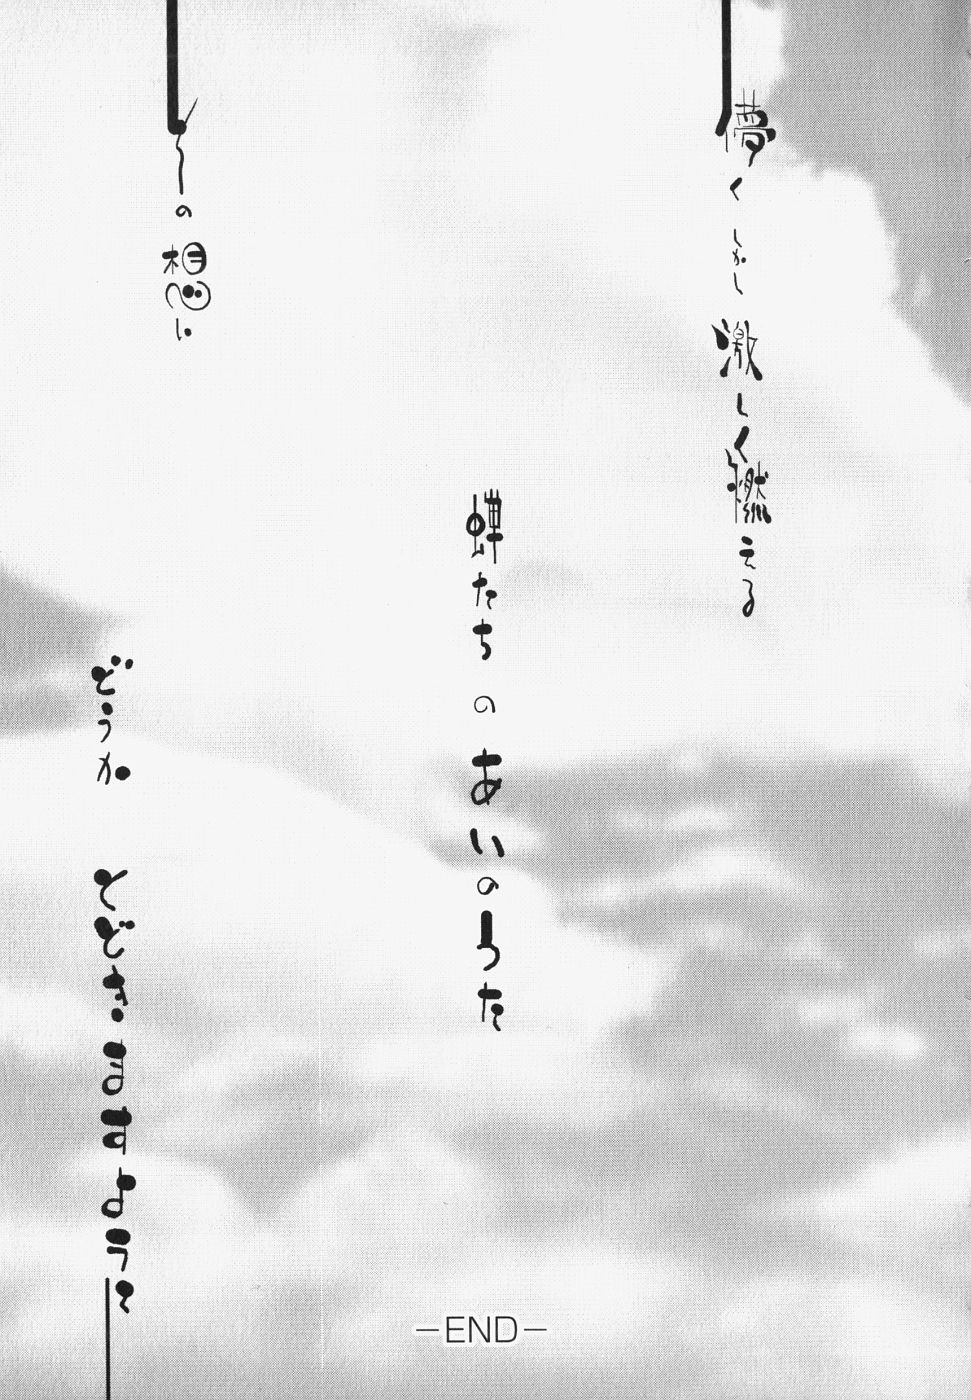 儚く しかし 激しく燃える
蝉たちの あいのうた
の想い
どうか とどきますように
―END―